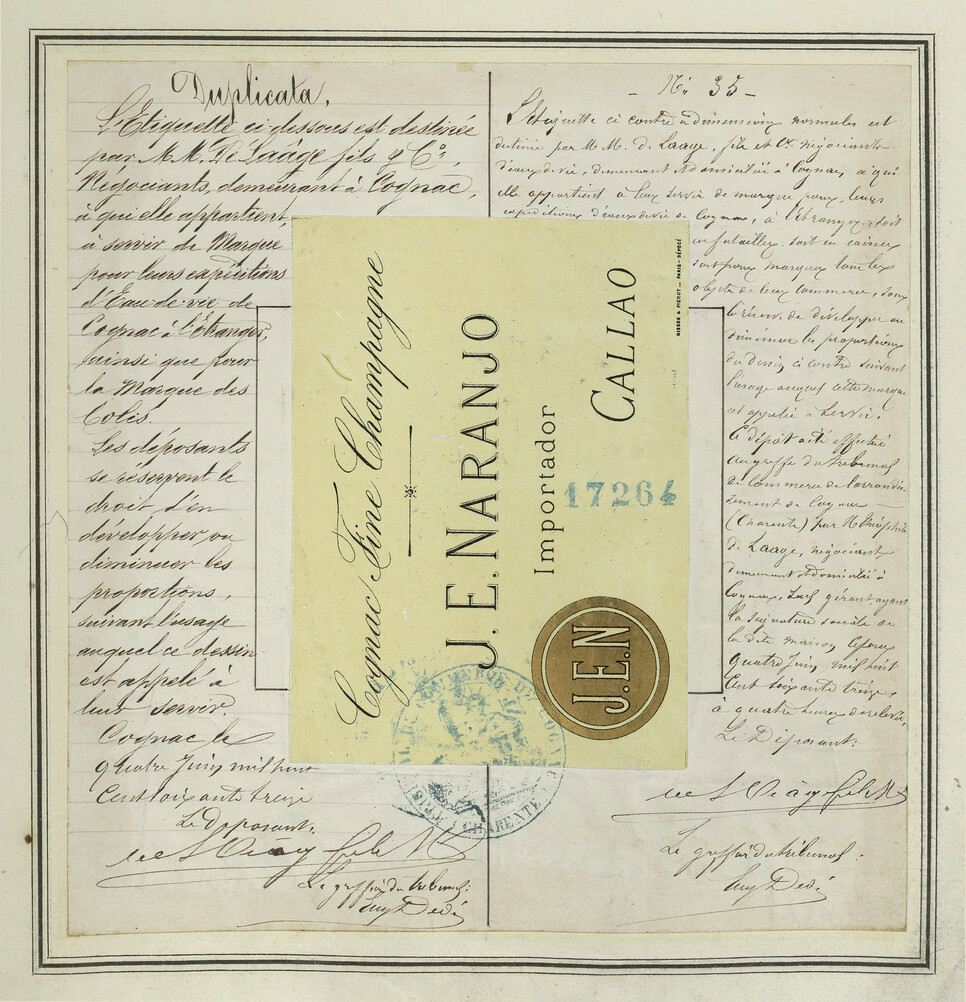 Duplicata.
L'Etiquette ci-dessous est destinée
par M.M. De Laâge fils & Cº,
Négociants, demeurant à Cognac,
à qui elle appartient,
à servir de Marque
pour leurs expéditions
d'Eau-de-vie de
Cognac à l'Etranger,
ainsi que pour
la Marque des
Colis.
Les déposants
se réservent le
droit d'en
développer, ou
diminuer les
proportions,
suivant l'usage
auquel ce dessin
est appelé à
leur servir.
Cognac le
quatre Juin mil huit
Cent soixante treize
Le Déposant:
Le greffier du tribunal:
- Nº 35 -
L'Etiquette ci contre à dimensions normales est
destinée par M.M. de Laage, fils et Cie négociants
d'eaux de vie, demeurant et domiciliés à Cognac, à qui
elle appartient à leur servir de marque pour leurs
expéditions d'eaux de vie de Cognac, à l'étranger soit
en futailles, soit en caisses
soit pour marquer tous les
objets de leur commerce, sous
la réserve de développer ou
diminuer les proportions
du dessin ci contre suivant
l'usage auquel cette marque
est appelée à servir.
Ce dépôt a été effectué
au greffe du tribunal
de Commerce de l'arrondis-
sement de Cognac
(Charente) par M.
de Laage, négociant
demeurant et domicilié à
Cognac, seul gérant ayant
la signature sociale de
la dite maison, ce jour
quatre Juin mil huit
Cent soixante treize
à quatre heures de relevée.
Le Déposant:
Le greffier du tribunal:
Cognac Fine Champagne
J. E. NARANJO
Importador
CALLAO
17264
J.E.N
COMMERCE DE COGNAC
CHARENTE